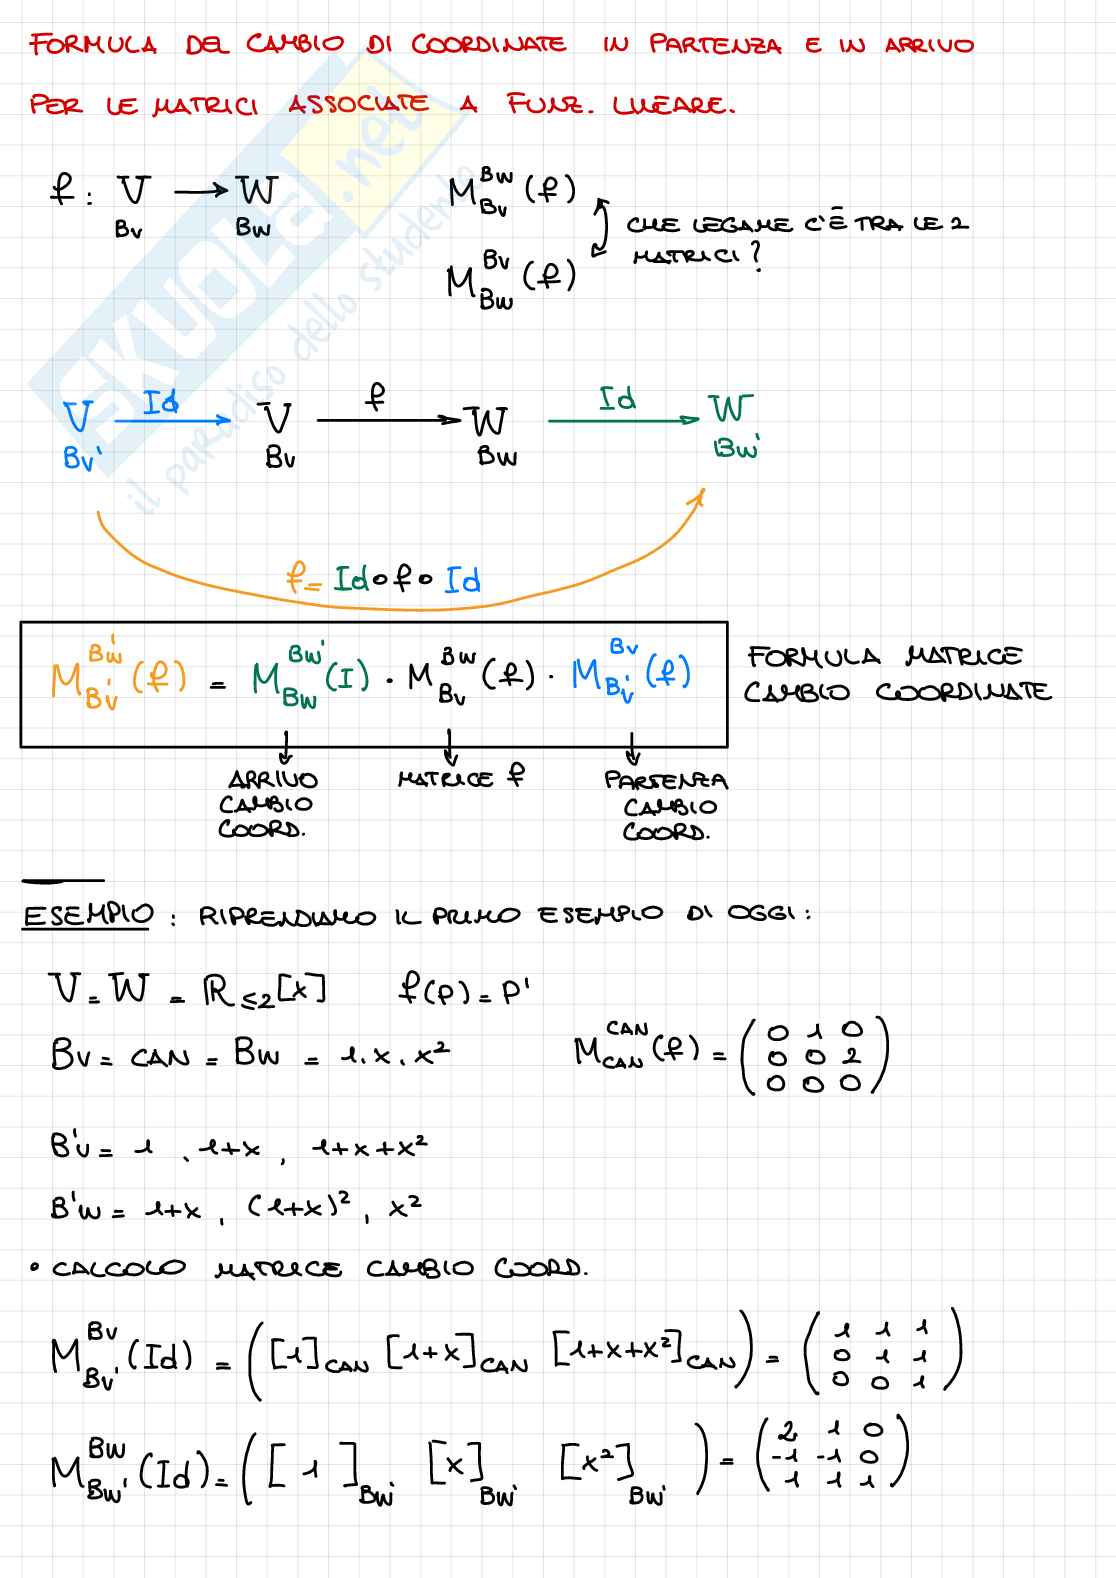 FORMULA DEL CAMBIO DI COORDINATE IN PARTENZA E IN ARRIVO
PER LE MATRICI ASSOCIATE A FUNZ. LINEARE.
f: V → W
Bv Bw
M^{Bw}_{Bv}(f)
M^{Bv}_{Bw}(f)
CHE LEGAME C'È TRA LE 2
MATRICI?
SKUOLA.net
il paradiso dello studente
V Id→ V f→ W Id→ W
Bv' Bv Bw Bw'
f = Id∘f∘Id
M^{Bw'}_{Bv'}(f) = M^{Bw'}_{Bw}(I) · M^{Bw}_{Bv}(f) · M^{Bv}_{Bv'}(f)
FORMULA MATRICE
CAMBIO COORDINATE
ARRIVO
CAMBIO
COORD.
MATRICE f
PARTENZA
CAMBIO
COORD.
ESEMPIO: RIPRENDIAMO IL PRIMO ESEMPIO DI OGGI:
V = W = ℝ≤2[x] f(p) = p'
Bv = CAN = Bw = 1, x, x²
M^{CAN}_{CAN}(f) = (0 1 0
0 0 2
0 0 0)
B'v = 1, 1+x, 1+x+x²
B'w = 1+x, (1+x)², x²
• CALCOLO MATRICE CAMBIO COORD.
M^{Bv}_{Bv'}(Id) = ([1]CAN [1+x]CAN [1+x+x²]CAN) = (1 1 1
0 1 1
0 0 1)
M^{Bw}_{Bw'}(Id) = ([1]Bw' [x]Bw' [x²]Bw') = (2 1 0
-1 -1 0
1 1 1)